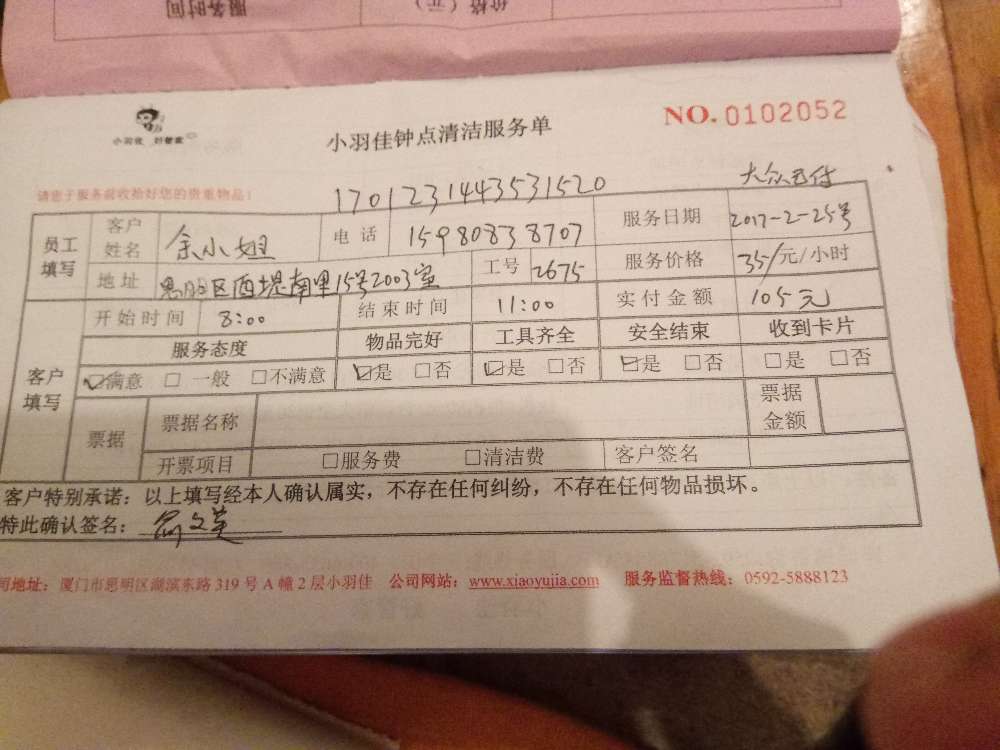 服务时间 价格（元）
小羽佳 好管家
小羽佳钟点清洁服务单
NO.0102052
请您于服务前收拾好您的贵重物品！
1701231443531520
大众已付
员工填写 客户姓名 余小姐 电话 15980838707 服务日期 2017-2-25号
地址 思明区西堤南里15号2003室 工号 2675 服务价格 35/元/小时
客户填写 开始时间 8:00 结束时间 11:00 实付金额 105元
服务态度 物品完好 工具齐全 安全结束 收到卡片
☑满意 □一般 □不满意 ☑是 □否 ☑是 □否 ☑是 □否 □是 □否
票据 票据名称 票据金额
开票项目 □服务费 □清洁费 客户签名
客户特别承诺：以上填写经本人确认属实，不存在任何纠纷，不存在任何物品损坏。
特此确认签名：
司地址：厦门市思明区湖滨东路 319 号 A 幢 2 层小羽佳 公司网站：www.xiaoyujia.com 服务监督热线：0592-5888123